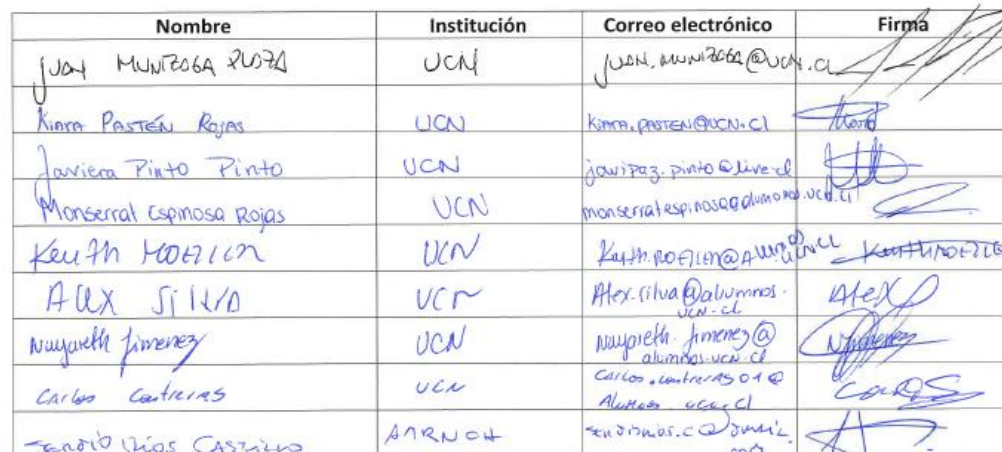 Nombre Institución Correo electrónico Firma
JUAN MUNIZAGA PLAZA UCN JUAN.MUNIZAGA@UCN.CL
Kiara PASTÉN Rojas UCN KIARA.PASTEN@UCN.Cl
Javiera Pinto Pinto UCN javipaz.pinto@live.cl
Monserrat Espinosa Rojas UCN monserrat.espinosa@alumnos.ucn.cl
Keuth UCN
Alex Silva UCN Alex.silva@alumnos. Alex
ucn.cl
Nayareth Jimenez UCN Nayareth.jimenez@
alumnos.ucn.cl
Carlos Contreras UCN Carlos.contreras01@
Alumnos.ucn.cl
Sergio CASTILLO